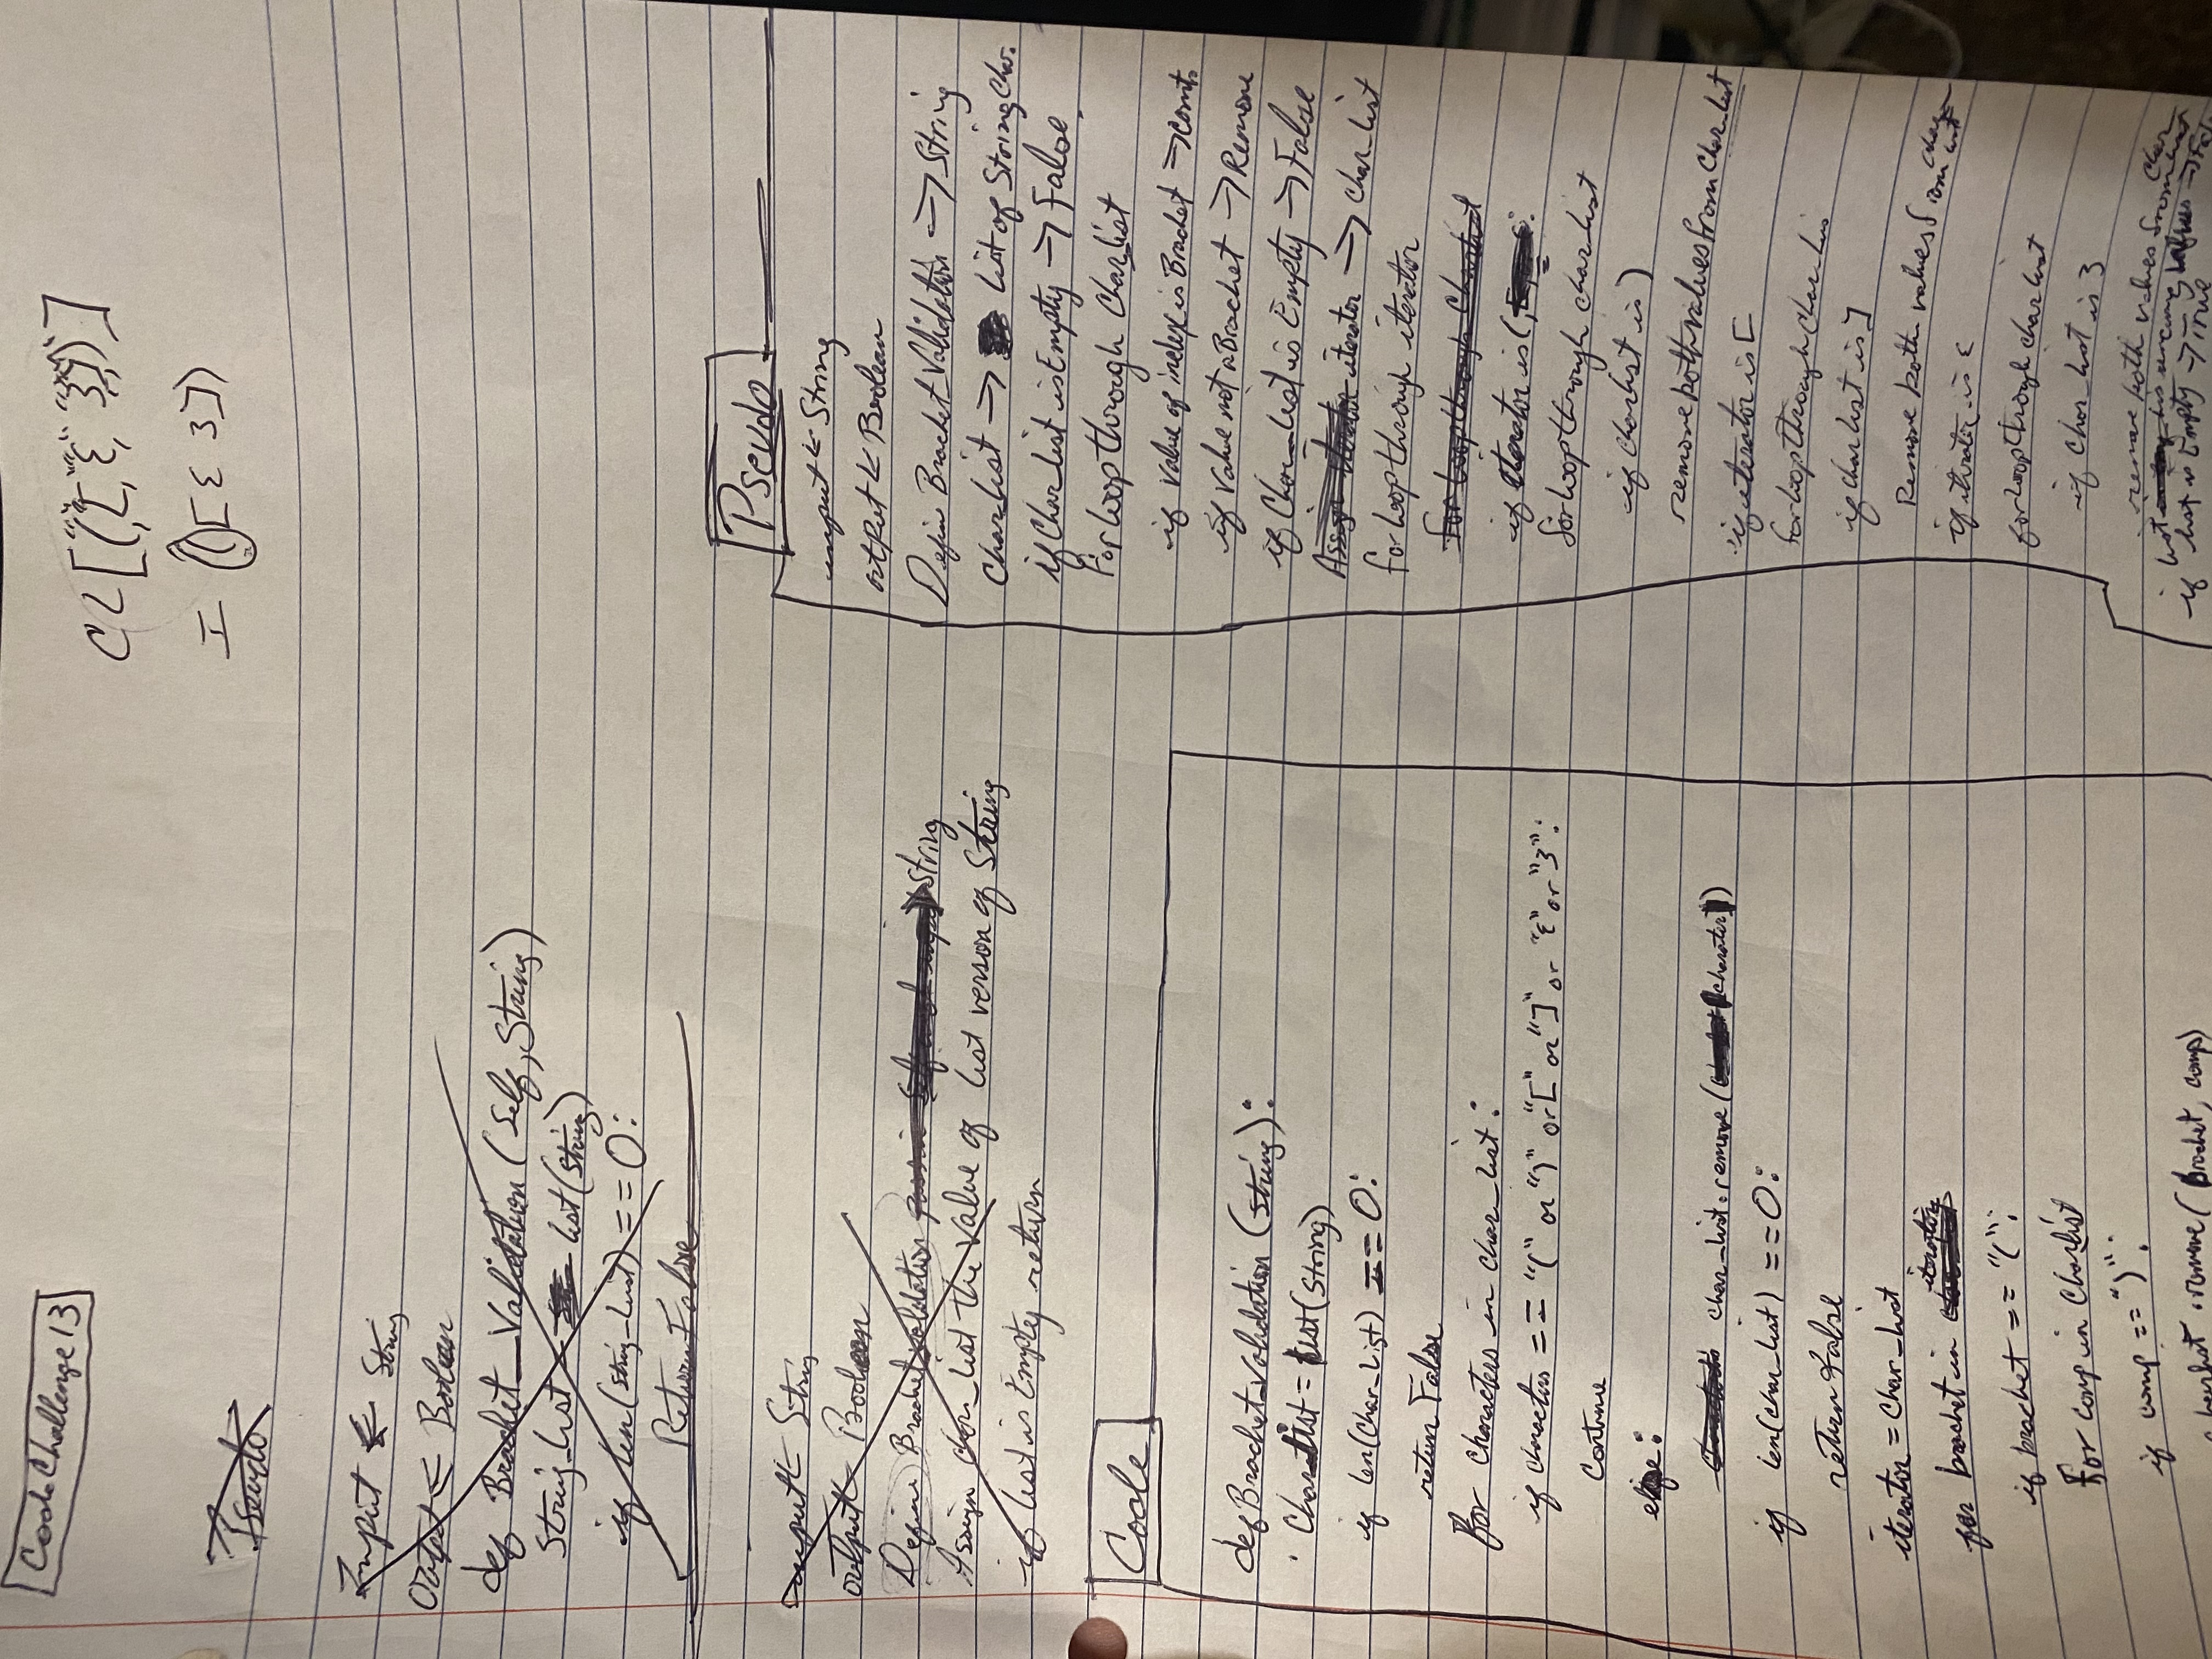 Code Challenge 13
CL["(","[","{","}","]",")"]
I ([{ }])
Pseudo
Input ← String
Output ← Boolean
def Bracket_Validation (Self, String)
String_List = list(String)
if len(String_List) == 0:
Return False
input ← String
output ← Boolean
Define Bracket validation String
Assign char_list the value of list version of String
if list is Empty return
Code
def Bracket_validation (string):
Char_list = list(string)
if len(Char_List) == 0:
return False
for characters in char_list:
if characters == "(" or ")" or "[" or "]" or "{" or "}":
Continue
else:
char_list.remove(Charater)
if len(char_list) == 0:
return False
iterator = Char_list
for bracket in iterator
if bracket == "(":
For comp in Charlist
if comp == ")":
charlist.remove(Bracket, comp)
Pseudo
input ← String
output ← Boolean
Define Bracket_Validation → String
Char_list → list of String Char.
if Char_list is Empty → False
For loop through Char_list
if value of index is Bracket → cont.
if value not a Bracket → Remove
if Char_list is Empty → False
Assign iterator iterator → char_list
for loop through iterator
for loop through Charlist
if iterator is (, [,
for loop through char_list
if charlist is )
remove both values from Char_list
if iterator is [
for loop through Char_lis
if char list is ]
Remove both values from char list
if iterator is {
for loop through char list
if char_list is }
remove both values from Char list
list values → Fals
if list is Empty → True